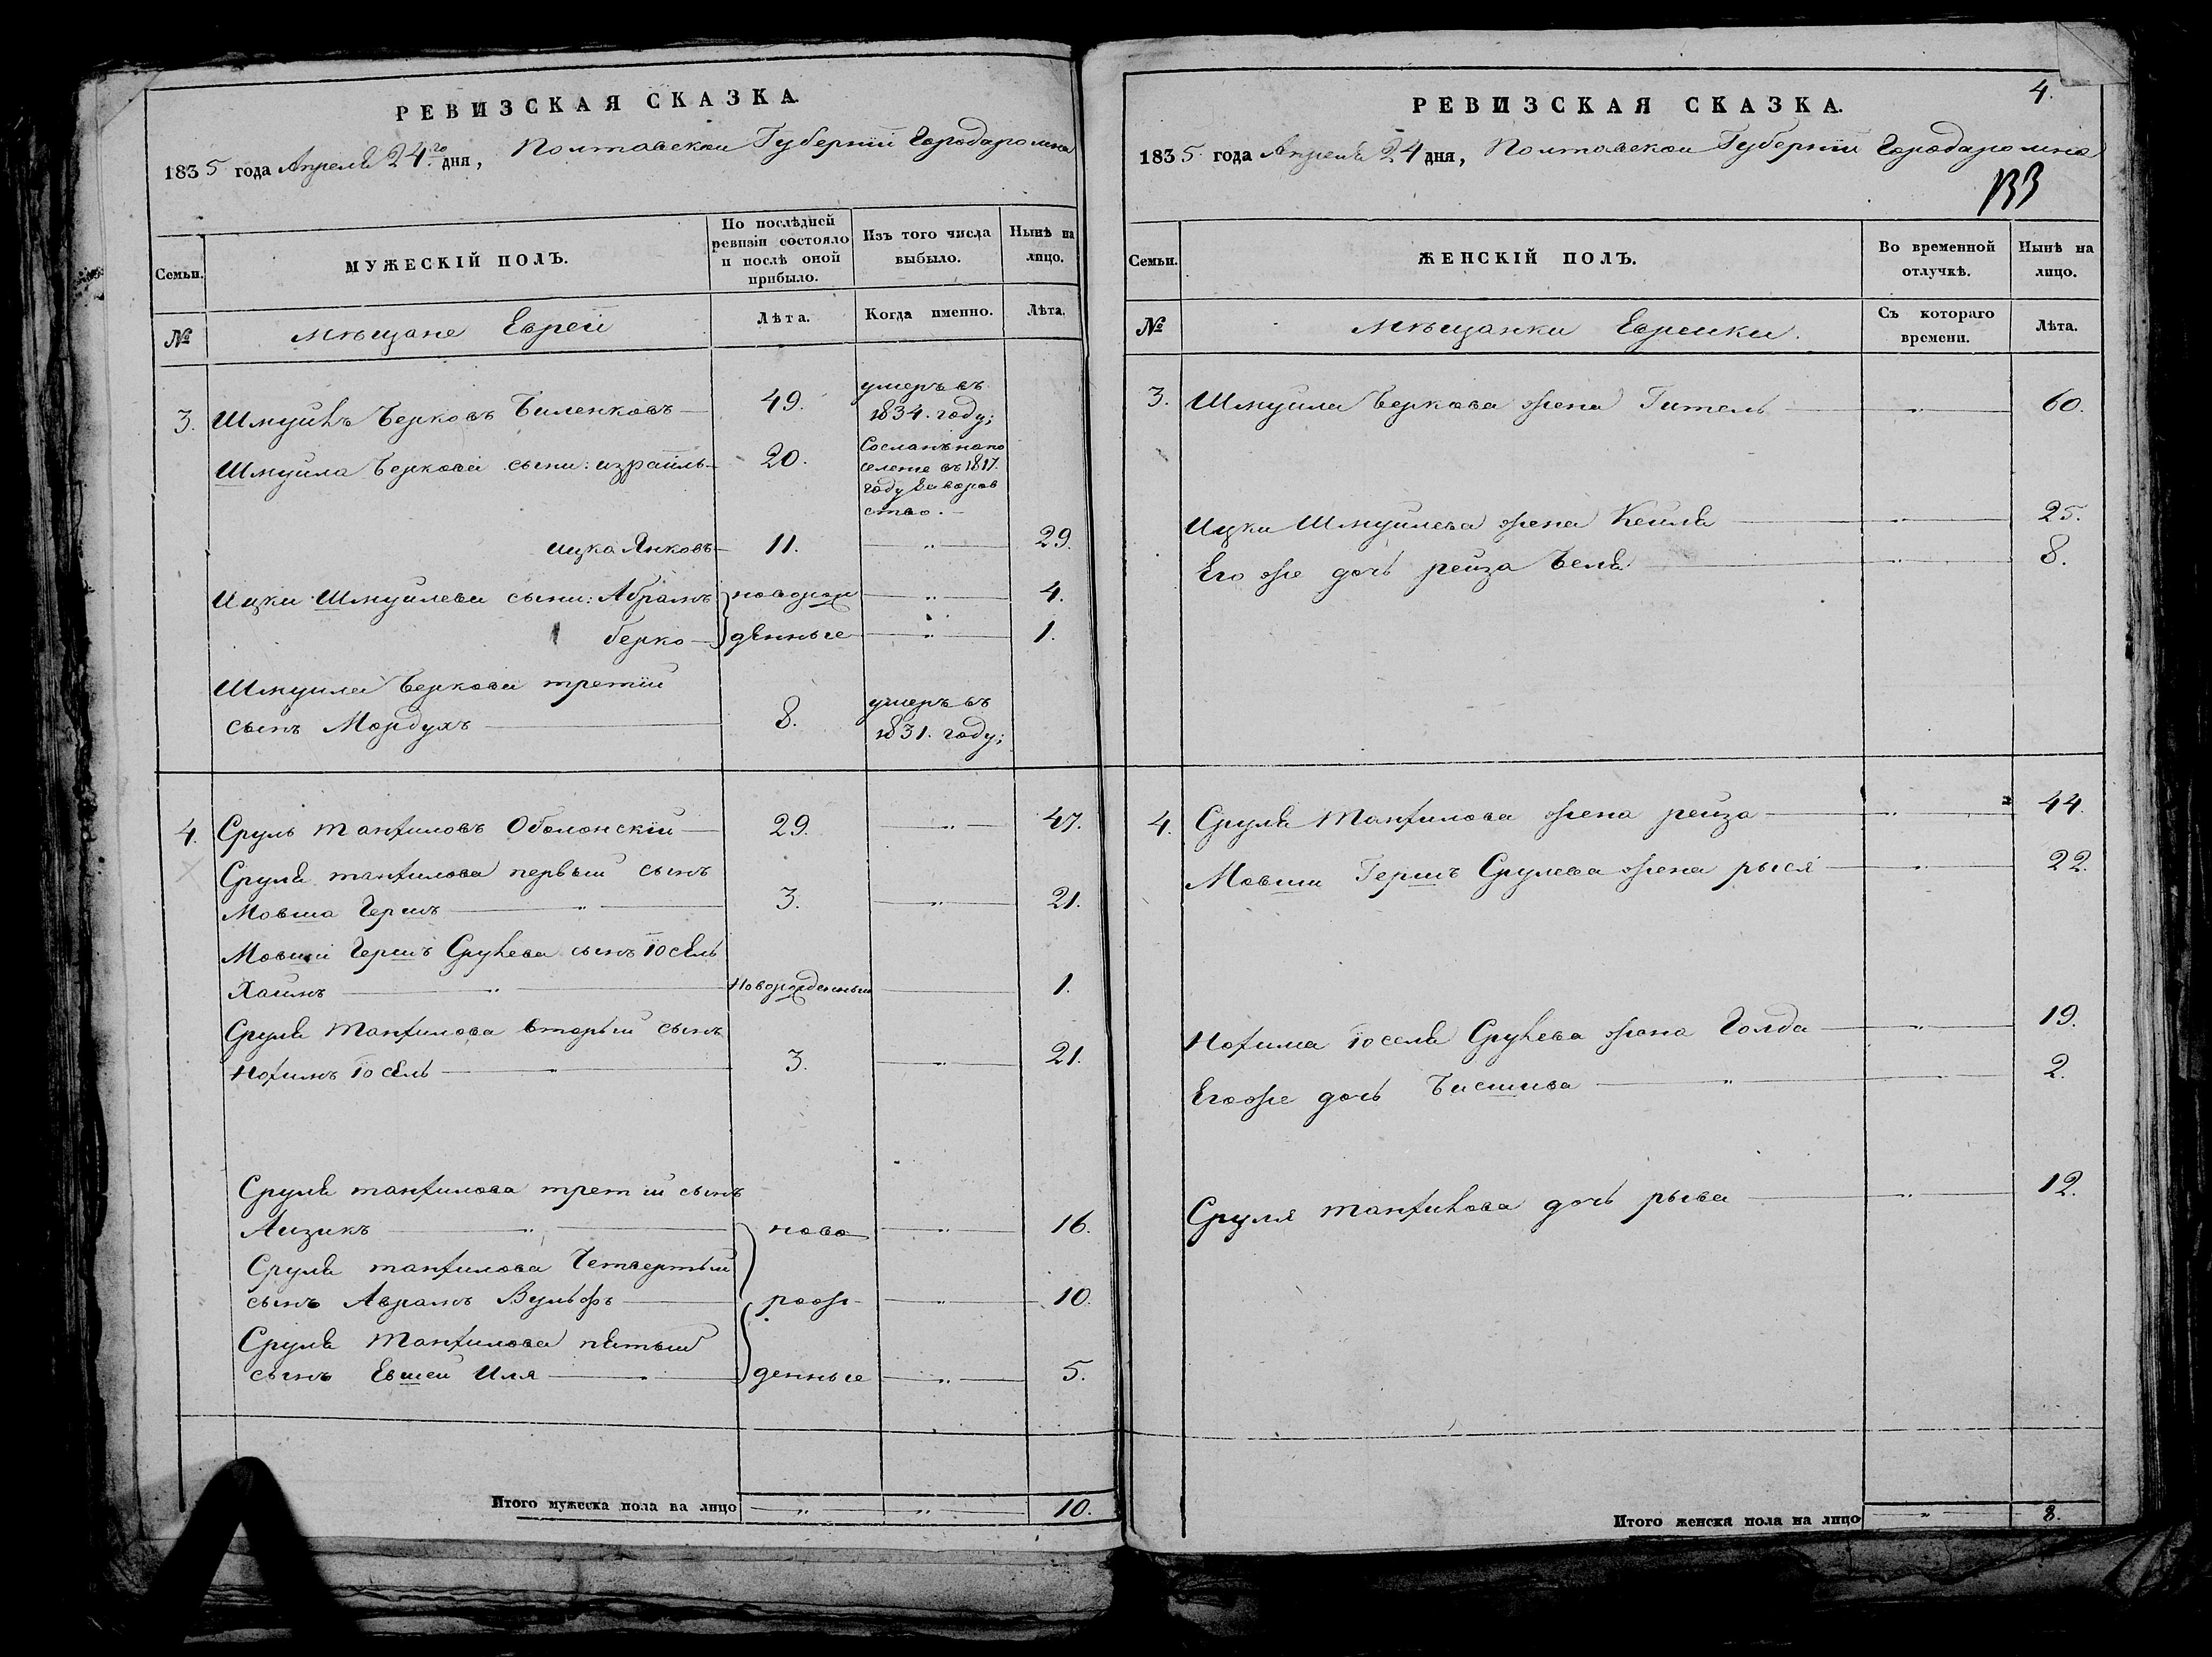 РЕВИЗСКАЯ СКАЗКА
1835 года Апреля 24.го дня, Полтавской Губернiи Города ромна
Семьи.
МУЖЕСКIЙ ПОЛЪ.
По послѣдней ревизiи состояло и послѣ оной прибыло.
Изъ того числа выбыло.
Нынѣ на лицо.
№
мѣщане Евреи
Лѣта.
Когда именно.
Лѣта.
3. Шмуйлъ Берковъ Биленковъ 49. умеръ въ 1834. году;
Шмуйла Беркова сыни: израйль 20. Сосланъ на по
селение въ 1817.
году за воров
ство.
ицка Янковъ 11. " 29.
Ицки Шмуйлева сыни: Абрамъ новорож " 4.
берко денные " 1.
Шмуйла Беркова третiй
сынъ Мордухъ 8. умеръ въ 1831. году;
4. Сруль танхиловъ Оболонскiй 29. " 47.
Сруля танхилова первый сынъ
Мовша Гершъ " 3. " 21.
Мовши Гершъ Срулева сынъ iосель
Хаимъ " Новорожденный 1.
Сруля Танхилова вторый сынъ
Нохимъ iосель " 3. " 21.
Сруля танхилова третiй сынъ
Аизикъ " ново " 16.
Сруля танхилова Четвертый
сынъ Аврамъ Вульфъ рож " 10.
Сруля Танхилова пятый
сынъ Евшей Иля " денные " 5.
Итого мужеска пола на лицо " " 10.
РЕВИЗСКАЯ СКАЗКА.
4.
1835 года Апреля 24 дня, Полтавской Губернiи Города ромна
133
Семьи.
ЖЕНСКIЙ ПОЛЪ.
Во временной отлучкѣ.
Нынѣ на лицо.
№
Мѣщанки Еврейки.
Съ котораго времени.
Лѣта.
3. Шмуйла Беркова жена Гитель " 60.
Ицки Шмуйлева жена Кейля " 25.
Его же дочь рейза Беля " 8.
4. Сруля Танхилова жена рейза " 44.
Мовши Гершъ Срулева жена рыся " 22.
Нохима iоселя Срулева жена Голда " 19.
Его же дочь Басшива " 2.
Сруля танхилова дочь рыва " 12.
Итого женска пола на лицо " 8.